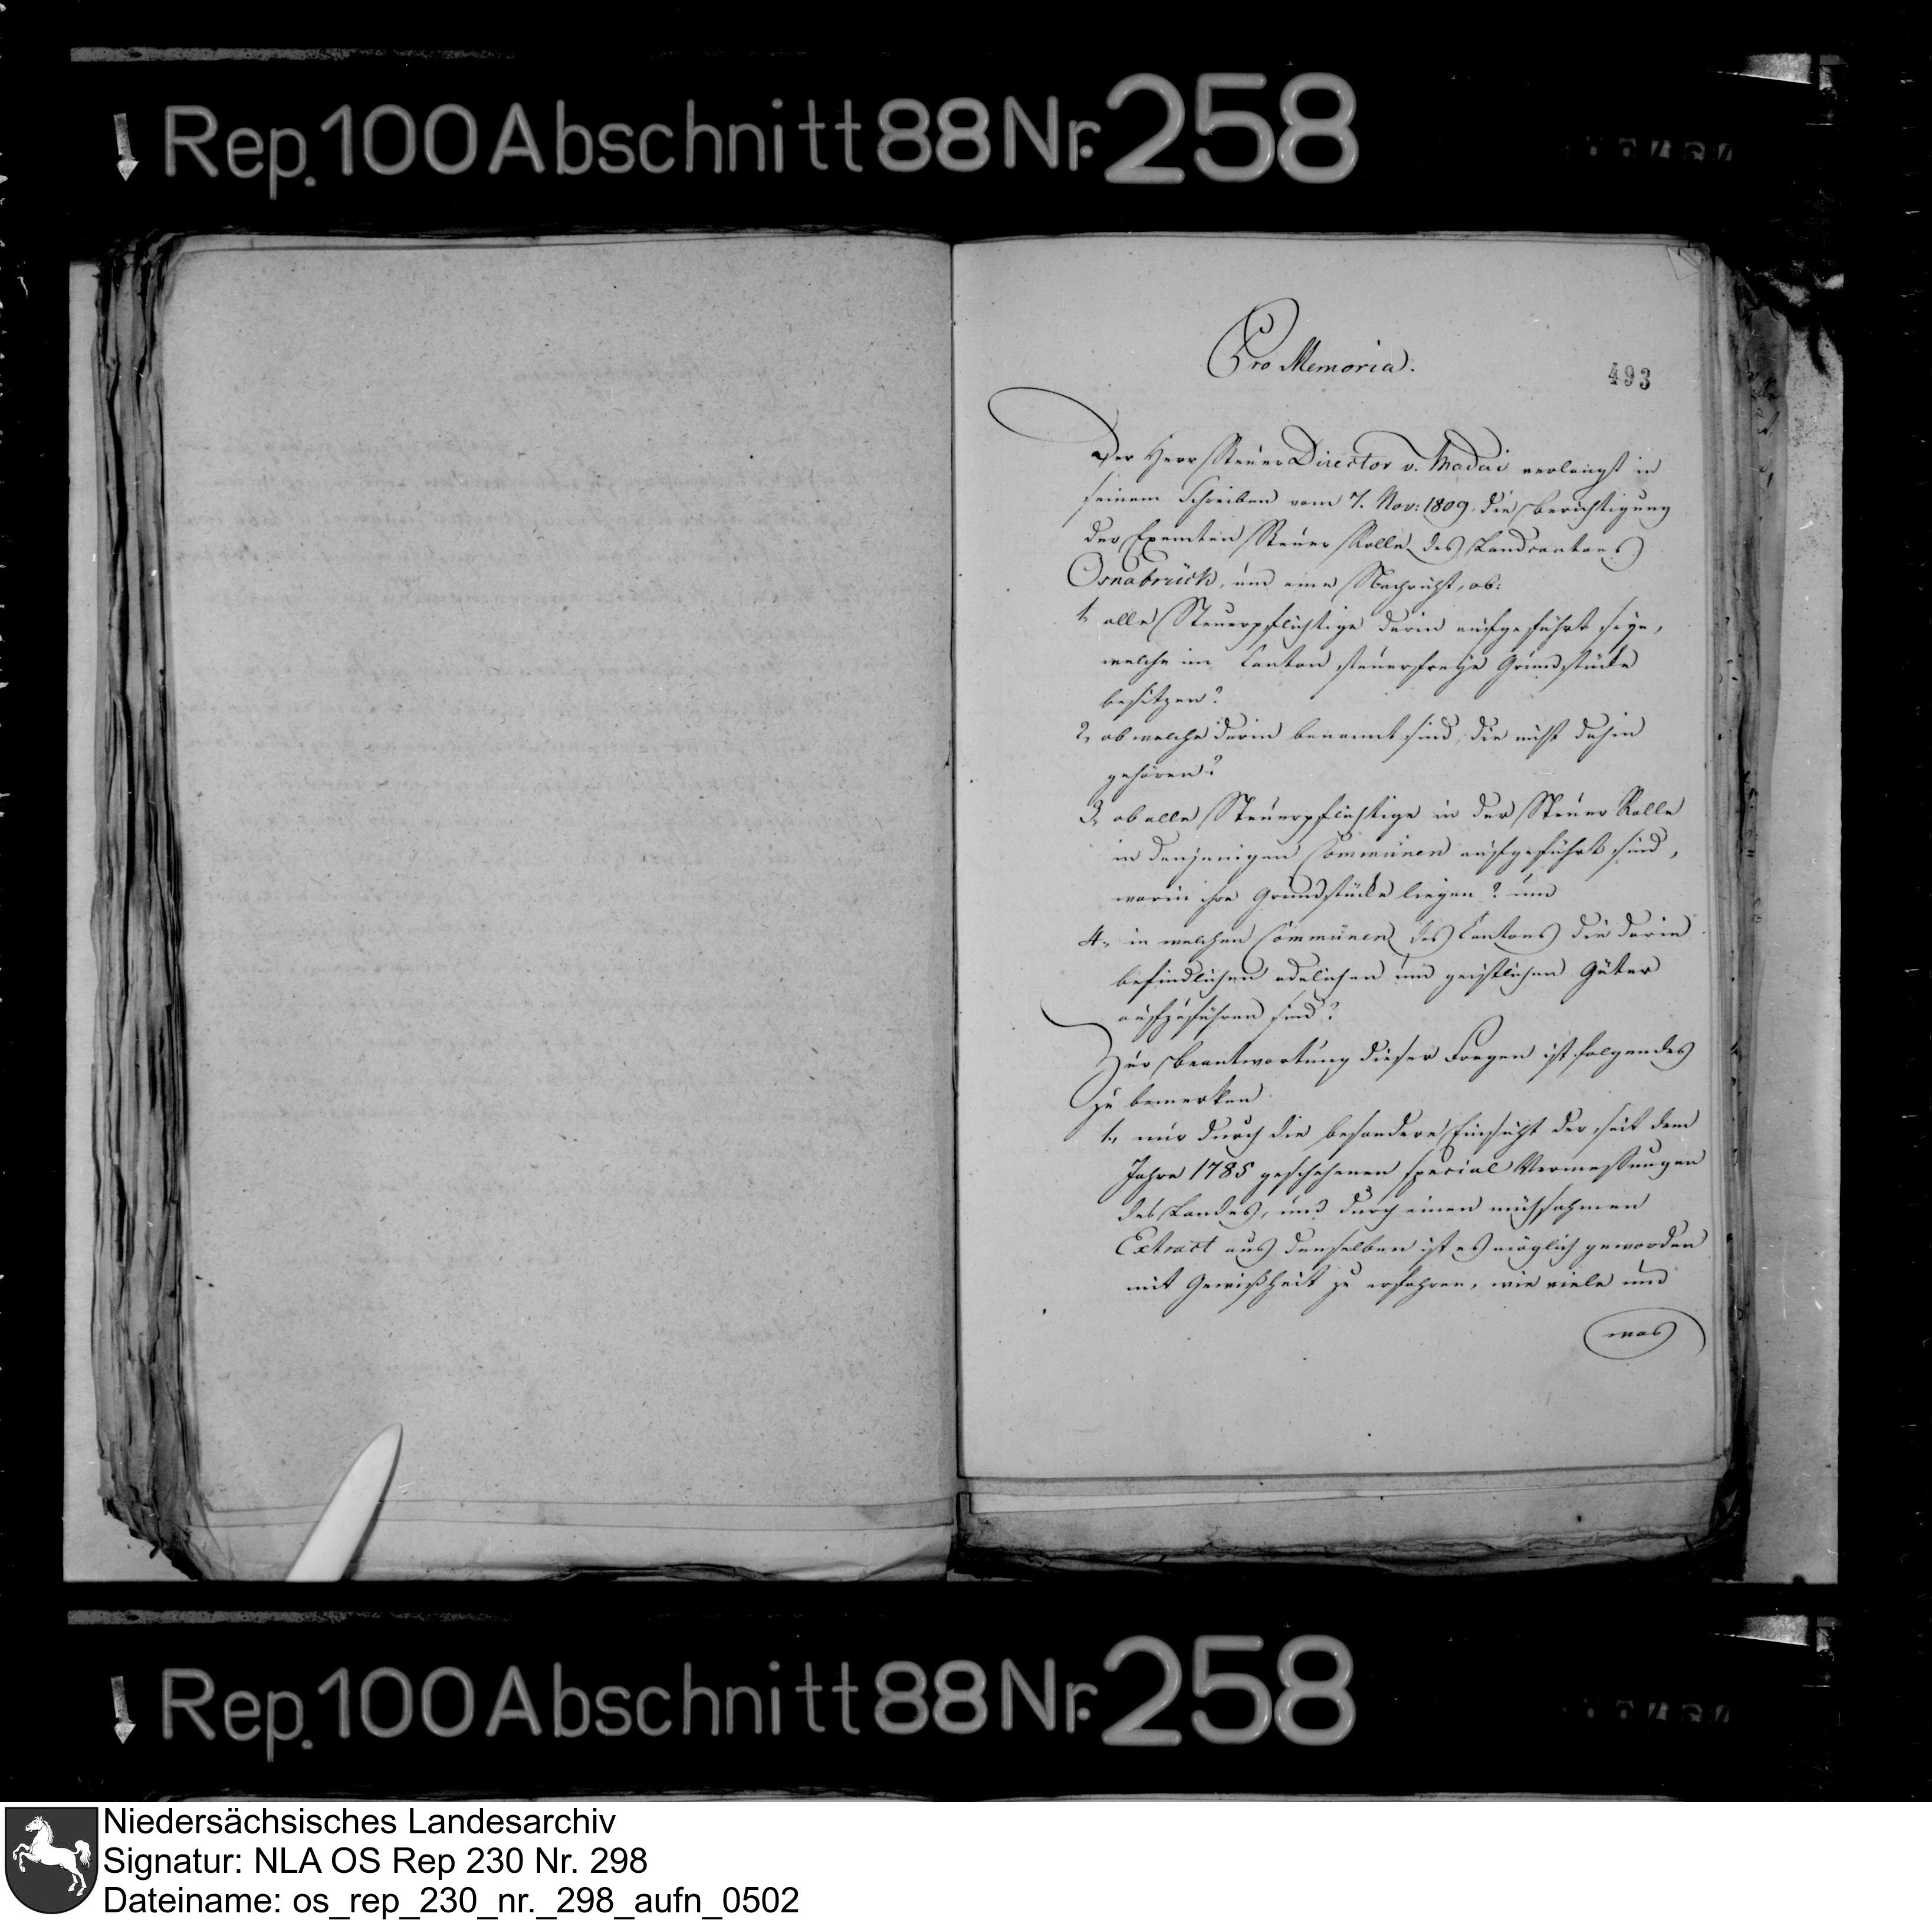 Rep. 100 Abschnitt 88 Nr. 258
Pro Memoria.
493
Der Herr Steuer Director v. Madai verlangt in
seinem Schreiben vom 7. Nov: 1809. die Berichtigung
der Exemten Steuer Rolle des Landcantons
Osnabrück, und eine Nachricht, ob:
1. alle Steuerpflichtige darin aufgeführt seyn,
welche im Canton steuerfreye Grundstücke
besitzen?
2, ob welche darin benannt sind, die nicht dahin
gehören?
3, ob alle Steuerpflichtige in der Steuer Rolle
in denjenigen Communen aufgeführt sind,
worin ihre Grundstücke liegen? und
4., in welchen Communen des Cantons die darin
befindlichen adelichen und geistlichen Güter
aufzuführen sind?
Zur Beantwortung dieser Fragen ist folgendes
zu bemerken
1., nur durch die besondere Einsicht der, seit dem
Jahre 1785 geschehenen special Vermessungen
des Landes, und durch einen mühsahmen
Extract aus denselben ist es möglich geworden
mit Gewißheit zu erfahren, wie viele und
was
Rep. 100 Abschnitt 88 Nr. 258
Niedersächsisches Landesarchiv
Signatur: NLA OS Rep 230 Nr. 298
Dateiname: os_rep_230_nr._298_aufn_0502